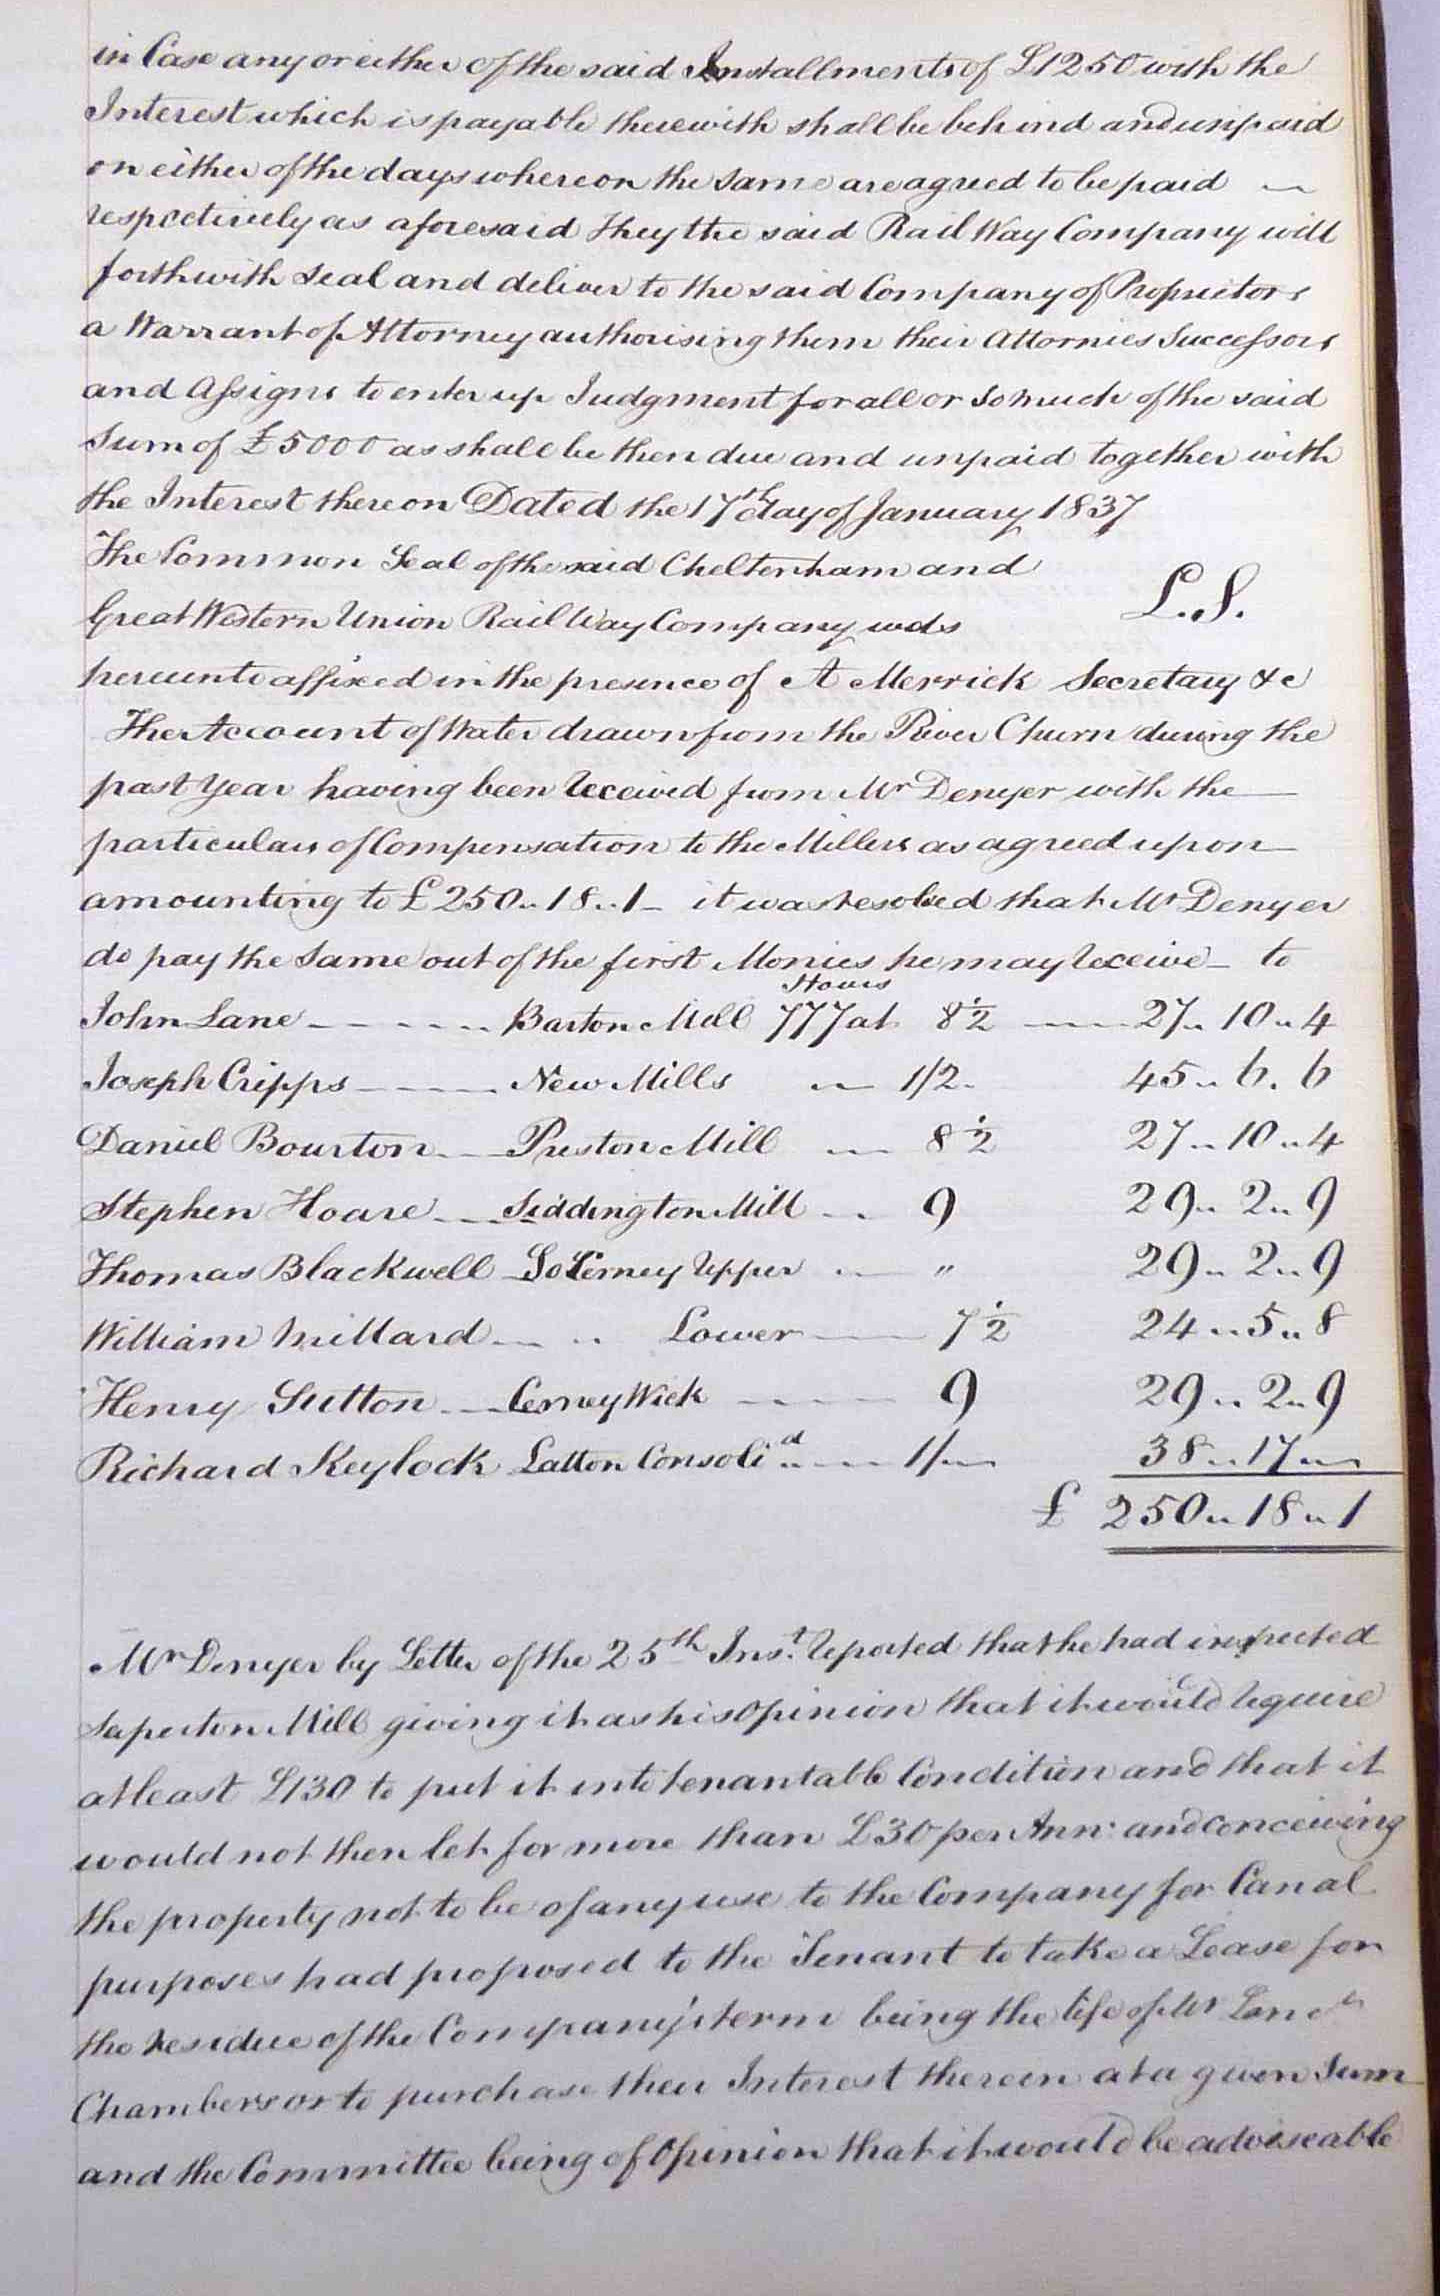 in Case any or either of the said Installments of £1250 with the
Interest which is payable therewith shall be behind and unpaid
on either of the days whereon the same are agreed to be paid
respectively as aforesaid They the said Rail Way Company will
forthwith seal and deliver to the said Company of Proprietors
a Warrant of Attorney authorising them their Attornies Successors
and Assigns to enter up Judgment for all or so much of the said
Sum of £5000 as shall be then due and unpaid together with
the Interest thereon Dated the 17th day of January 1837
The Common Seal of the said Cheltenham and
Great Western Union Rail Way Company was
L.S.
hereunto affixed in the presence of A Merrick Secretary &c
The Account of Water drawn from the River Churn during the
past Year having been received from Mr Denyer with the
particulars of Compensation to the Millers as agreed upon
amounting to £250.. 18.. 1 – it was resolved that Mr Denyer
do pay the same out of the first Monies he may receive – to
Hours
John Lane ----- Barton Mill 777 at 8½ — 27.. 10.. 4
Joseph Cripps ---- New Mills — 1/2 45.. 6. 6
Daniel Bourton -- Preston Mill — 8½ 27.. 10.. 4
Stephen Hoare --- Siddington Mill .. 9 29.. 2.. 9
Thomas Blackwell So Cerney Upper .. " 29.. 2.. 9
William Millard -- .. Lower — 7½ 24.. 5.. 8
Henry Sutton --- Cerney Wick ---- 9 29.. 2.. 9
Richard Keylock Latton Consolid .. -- 1/- 38.. 17.. –
£ 250.. 18.. 1
Mr Denyer by Letter of the 25th Inst. reported that he had inspected
Saperton Mill giving it as his opinion that it would require
at least £130 to put it into tenantable Condition and that it
would not then let for more than £30 per Ann: and conceiving
the property not to be of any use to the Company for Canal
purposes had proposed to the Tenant to take a Lease for
the residue of the Company's term being the life of Mr
Chambers or to purchase their Interest therein at a given Sum
and the Committee being of Opinion that it would be adviseable